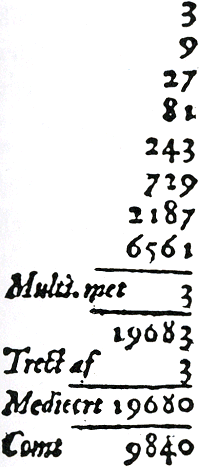 3
9
27
81
243
729
2187
6561
Multi. met 3
19683
Trect af 3
Medieert 19680
Comt 9840